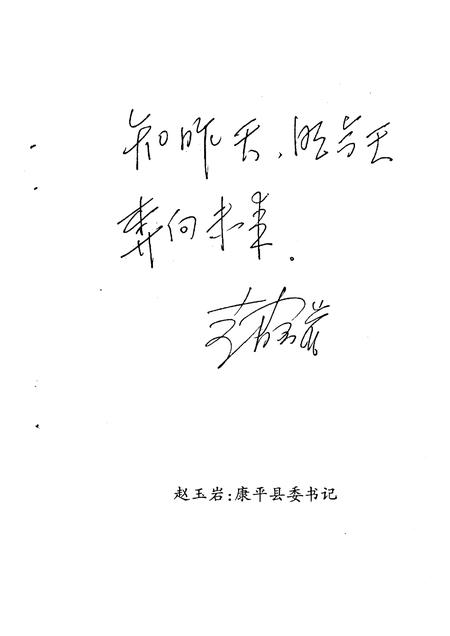 知昨天、晓今天
奔向未来.
赵玉岩
赵玉岩:康平县委书记